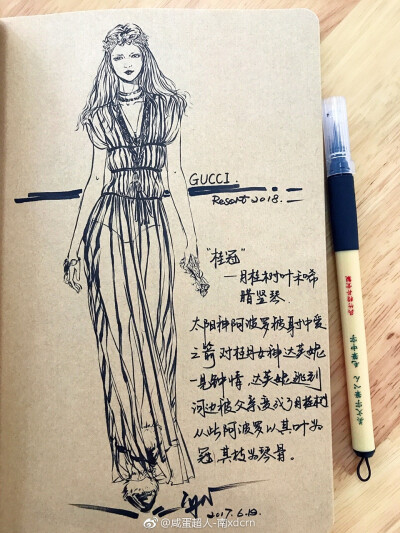 GUCCI.
Resort 2018.
"桂冠"
——月桂树叶和希
腊竖琴
太阳神阿波罗被射中爱
之箭 对桂女神达芙妮
一见钟情,达芙妮逃到
河边被父亲变成了月桂树
从此阿波罗以其叶为
冠 其枝为琴骨。
2017.6.19.
@咸蛋超人-南xdcrn